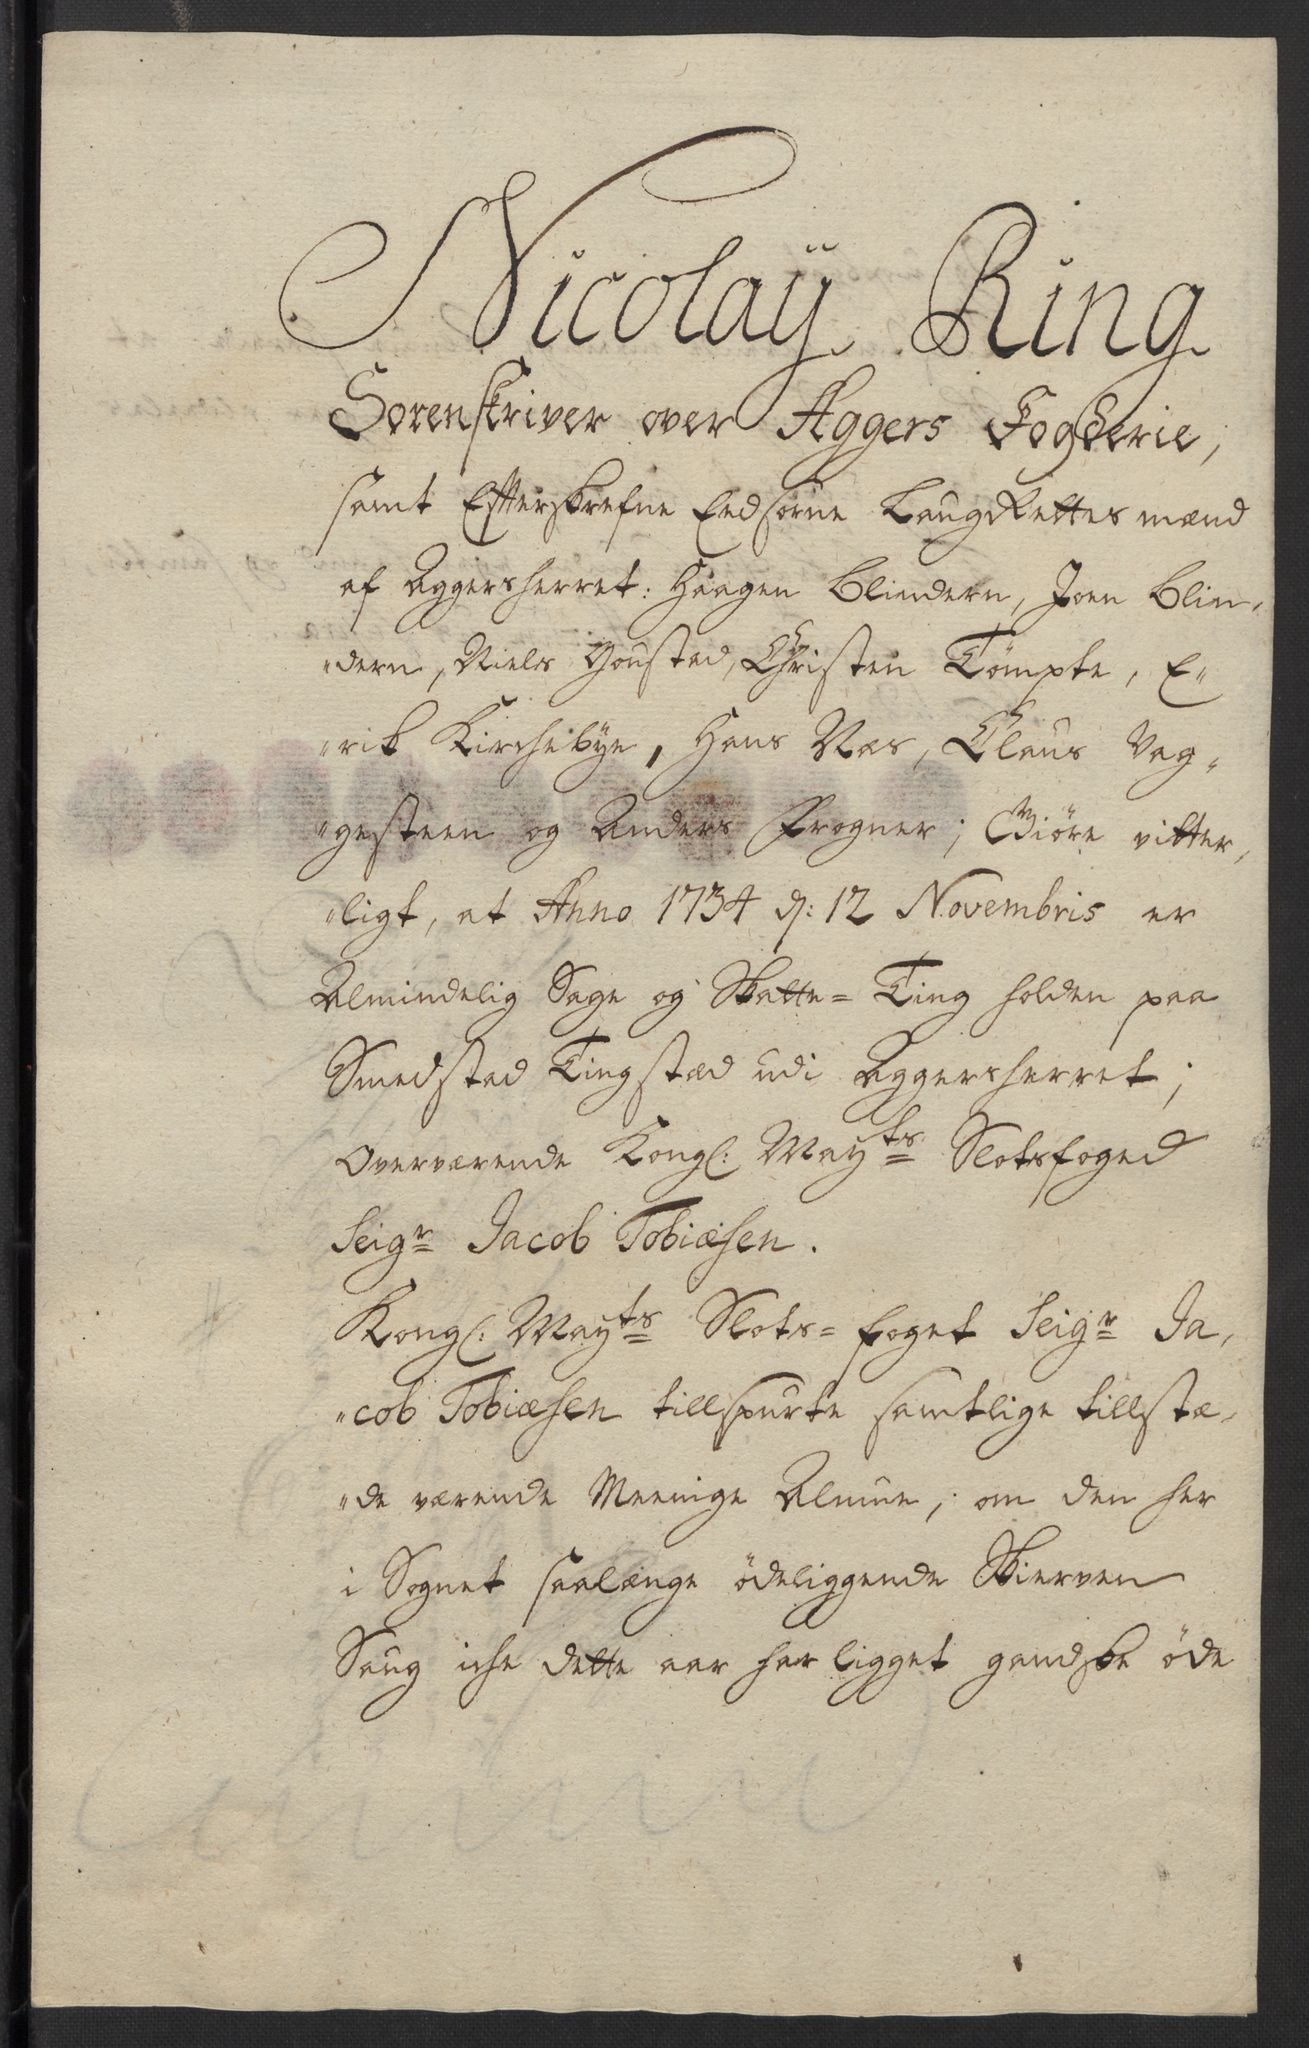 Nicolaÿ Ring
Sorenskriver over Aggers Fogderie,
samt Efterskrefne Eedsorne LaugRettes mænd
af Aggersherret: Haagen Blindern, Joen Blin„
„dern, Niels Gousted, Christen Tömpte, E„
„rik Kirchebÿe, Hans Næs, Claus Væg„
„gesteen og Anders Frogner; Giöre vitter„
„ligt, at Anno 1734 d: 12 Novembris er
Almindelig Sage og Skatte= Ting holden paa
Smedstad Tingstæd udi Aggersherret;
Overværende Kongl: Mayts Slotsfoged
Seigr Jacob Tobiæsen.
Kongl: Mayts Slots= foget Seigr Ja„
„cob Tobiæsen tillspurte samtlige tillstæ„
„de værende Meenige Almue, om den her
i Sognet saalænge ödeliggende Skierven
Saug iche dette aar har ligget gandske öde